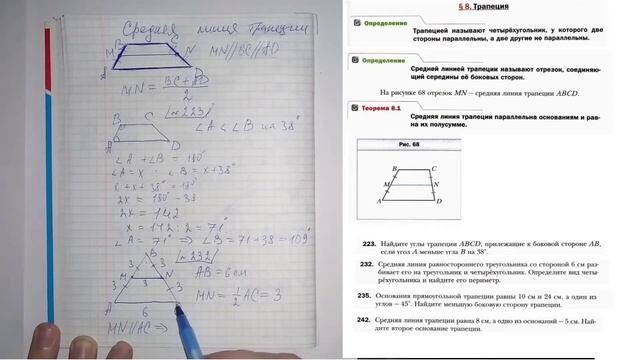 Средняя линия Трапеции
B C
M N
A D
MN//BC//AD
MN = BC + AD
2
№ 223
B C
A D
∠A < ∠B на 38°
∠A + ∠B = 180°
∠A = x ∠B = x+38°
x + x + 38° = 180°
2x = 180° - 38
2x = 142
x = 142 : 2 = 71°
∠A = 71° ⇒ ∠B = 71+38 = 109°
№ 232
B
3 3
M N
3
3 3
A
6
AB = 6 см
MN = 1/2 AC = 3
MN//AC ⇒
§ 8. Трапеция
Определение
Трапецией называют четырёхугольник, у которого две
стороны параллельны, а две другие не параллельны.
Определение
Средней линией трапеции называют отрезок, соединяю-
щий середины её боковых сторон.
На рисунке 68 отрезок MN — средняя линия трапеции ABCD.
Теорема 8.1
Средняя линия трапеции параллельна основаниям и рав-
на их полусумме.
Рис. 68
B C
M N
A D
223. Найдите углы трапеции ABCD, прилежащие к боковой стороне AB,
если угол A меньше угла B на 38°.
232. Средняя линия равностороннего треугольника со стороной 6 см раз-
бивает его на треугольник и четырёхугольник. Определите вид четы-
рёхугольника и найдите его периметр.
235. Основания прямоугольной трапеции равны 10 см и 24 см, а один из
углов — 45°. Найдите меньшую боковую сторону трапеции.
242. Средняя линия трапеции равна 8 см, а одно из оснований — 5 см. Най-
дите второе основание трапеции.